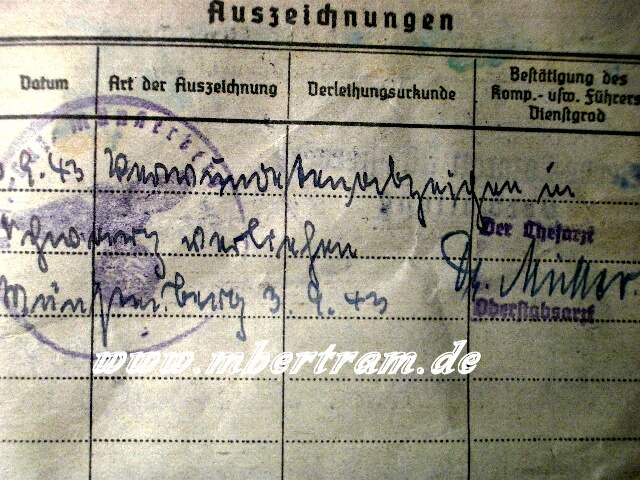 Auszeichnungen
Datum
Art der Auszeichnung
Verleihungsurkunde
Bestätigung des
Komp.- usw. Führers
Dienstgrad
.9.43 Verwundetenabzeichen in
schwarz verliehen
Münsterberg 3.9.43
Der Chefarzt
Dr. Müller.
Oberstabsarzt
www.mbertram.de